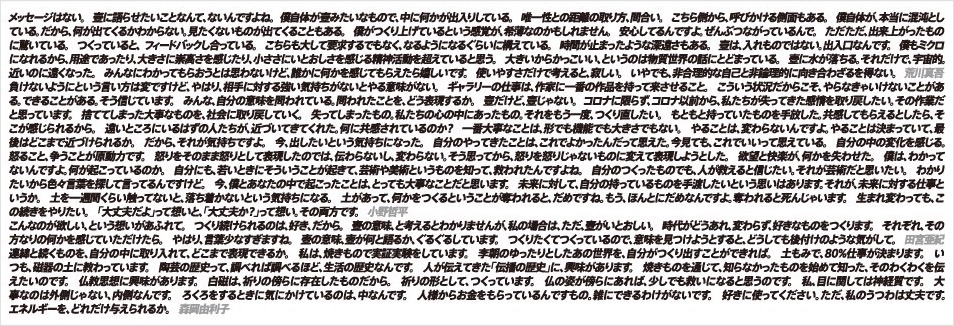 メッセージはない。 壺に語らせたいことなんて、ないんですよね。 僕自体が壺みたいなもので、中に何かが出入りしている。 唯一性との距離の取り方、間合い。 こちら側から、呼びかける側面もある。 僕自体が、本当に混沌とし
ている。だから、何が出てくるかわからない。見たくないものが出てくることもある。 僕がつくり上げているという感覚が、希薄なのかもしれません。 安心してるんですよ。ぜんぶつながっているんで。 ただただ、出来上がったもの
に驚いている。 つくっていると、フィードバックし合っている。 こちらも大して要求するでもなく、なるようになるぐらいに構えている。 時間が止まったような深遠さもある。 壺は、入れものではない。出入口なんです。 僕もミクロ
になれるから。用途であったり、大きさに崇高さを感じたり、小ささにいとおしさを感じる精神活動を超えていると思う。 大きいからかっこいい、というのは物質世界の話にとどまっている。 壺に水が落ちる。それだけで、宇宙的。
近いのに遠くなった。 みんなにわかってもらおうとは思わないけど、誰かに何かを感じてもらえたら嬉しいです。 使いやすさだけで考えると、寂しい。 いやでも、非合理的な自己と非論理的に向き合わざるを得ない。 荒川真吾
負けないようにという言い方は変ですけど、やはり、相手に対する強い気持ちがないとやる意味がない。 ギャラリーの仕事は、作家に一番の作品を持って来させること。 こういう状況だからこそ、やらなきゃいけないことがあ
る。できることがある。そう信じています。 みんな、自分の意味を問われている。問われたことを、どう表現するか。 壺だけど、壺じゃない。 コロナに限らず、コロナ以前から、私たちが失ってきた感情を取り戻したい。その作業だ
と思っています。 捨ててしまった大事なものを、社会に取り戻していく。 失ってしまったもの。私たちの心の中にあったもの。それをもう一度、つくり直したい。 もともと持っていたものを手放した。共感してもらえるとしたら、そ
こが感じられるから。 遠いところにいるはずの人たちが、近づいてきてくれた。何に共感されているのか？ 一番大事なことは、形でも機能でも大きさでもない。 やることは、変わらないんですよ。やることは決まっていて、最
後はどこまで近づけられるか。 だから、それが気持ちですよ。 今、出したいという気持ちになった。 自分のやってきたことは、これでよかったんだって思えた。今見ても、これでいいって思えている。 自分の中の変化を感じる。
怒ること、争うことが原動力です。 怒りをそのまま怒りとして表現したのでは、伝わらないし、変わらない。そう思ってから、怒りを怒りじゃないものに変えて表現しようとした。 欲望と快楽が、何かを失わせた。 僕は、わかって
ないんですよ。何が起こっているのか。 自分にも、若いときにそういうことが起きて、芸術や美術というものを知って、救われたんですよね。 自分のつくったものでも、人が救えると信じたい。それが芸術だと思いたい。 わかり
たいから色々言葉を探して言ってるんですけど。 今、僕とあなたの中で起こったことは、とっても大事なことだと思います。 未来に対して、自分の持っているものを手渡したいという思いはあります。それが、未来に対する仕事と
いうか。 土を一週間くらい触ってないと、落ち着かないという気持ちになる。 土があって、何かをつくるということが奪われると、だめですね。もう、ほんとにだめなんですよ。奪われると死んじゃいます。 生まれ変わっても、こ
の続きをやりたい。 「大丈夫だよ」って想いと、「大丈夫か？」って想い。その両方です。 小野哲平
こんなのが欲しい、という想いがあふれて。 つくり続けられるのは、好き、だから。 壺の意味、と考えるとわかりませんが、私の場合は、ただ、壺がいとおしい。 時代がどうあれ、変わらず、好きなものをつくります。 それぞれ、その
方なりの何かを感じていただけたら。 やはり、言葉少なすぎますね。 壺の意味。壺が何と語るか、ぐるぐるしています。 つくりたくてつくっているので、意味を見つけようとすると、どうしても後付けのような気がして。 田宮亜紀
連綿と続くものを、自分の中に取り入れて、どこまで表現できるか。 私は、焼きもので実証実験をしています。 李朝のゆったりとしたあの世界を、自分がつくり出すことができれば。 土もみで、80％仕事が決まります。 い
つも、磁器の土に教わっています。 陶芸の歴史って、調べれば調べるほど、生活の歴史なんです。 人が伝えてきた「伝播の歴史」に、興味があります。 焼きものを通じて、知らなかったものを始めて知った、そのわくわくを伝
えたいのです。 仏教思想に興味があります。 白磁は、祈りの傍らに存在したものだから。 祈りの形として、つくっています。 仏の姿が傍らにあれば、少しでも救いになると思うのです。 私、目に関しては神経質です。 大
事なのは外側じゃない、内側なんです。 ろくろをするときに気にかけているのは、中なんです。 人様からお金をもらっているんですもの。雑にできるわけがないです。 好きに使ってください。ただ、私のうつわは丈夫です。
エネルギーを、どれだけ与えられるか。 森岡由利子